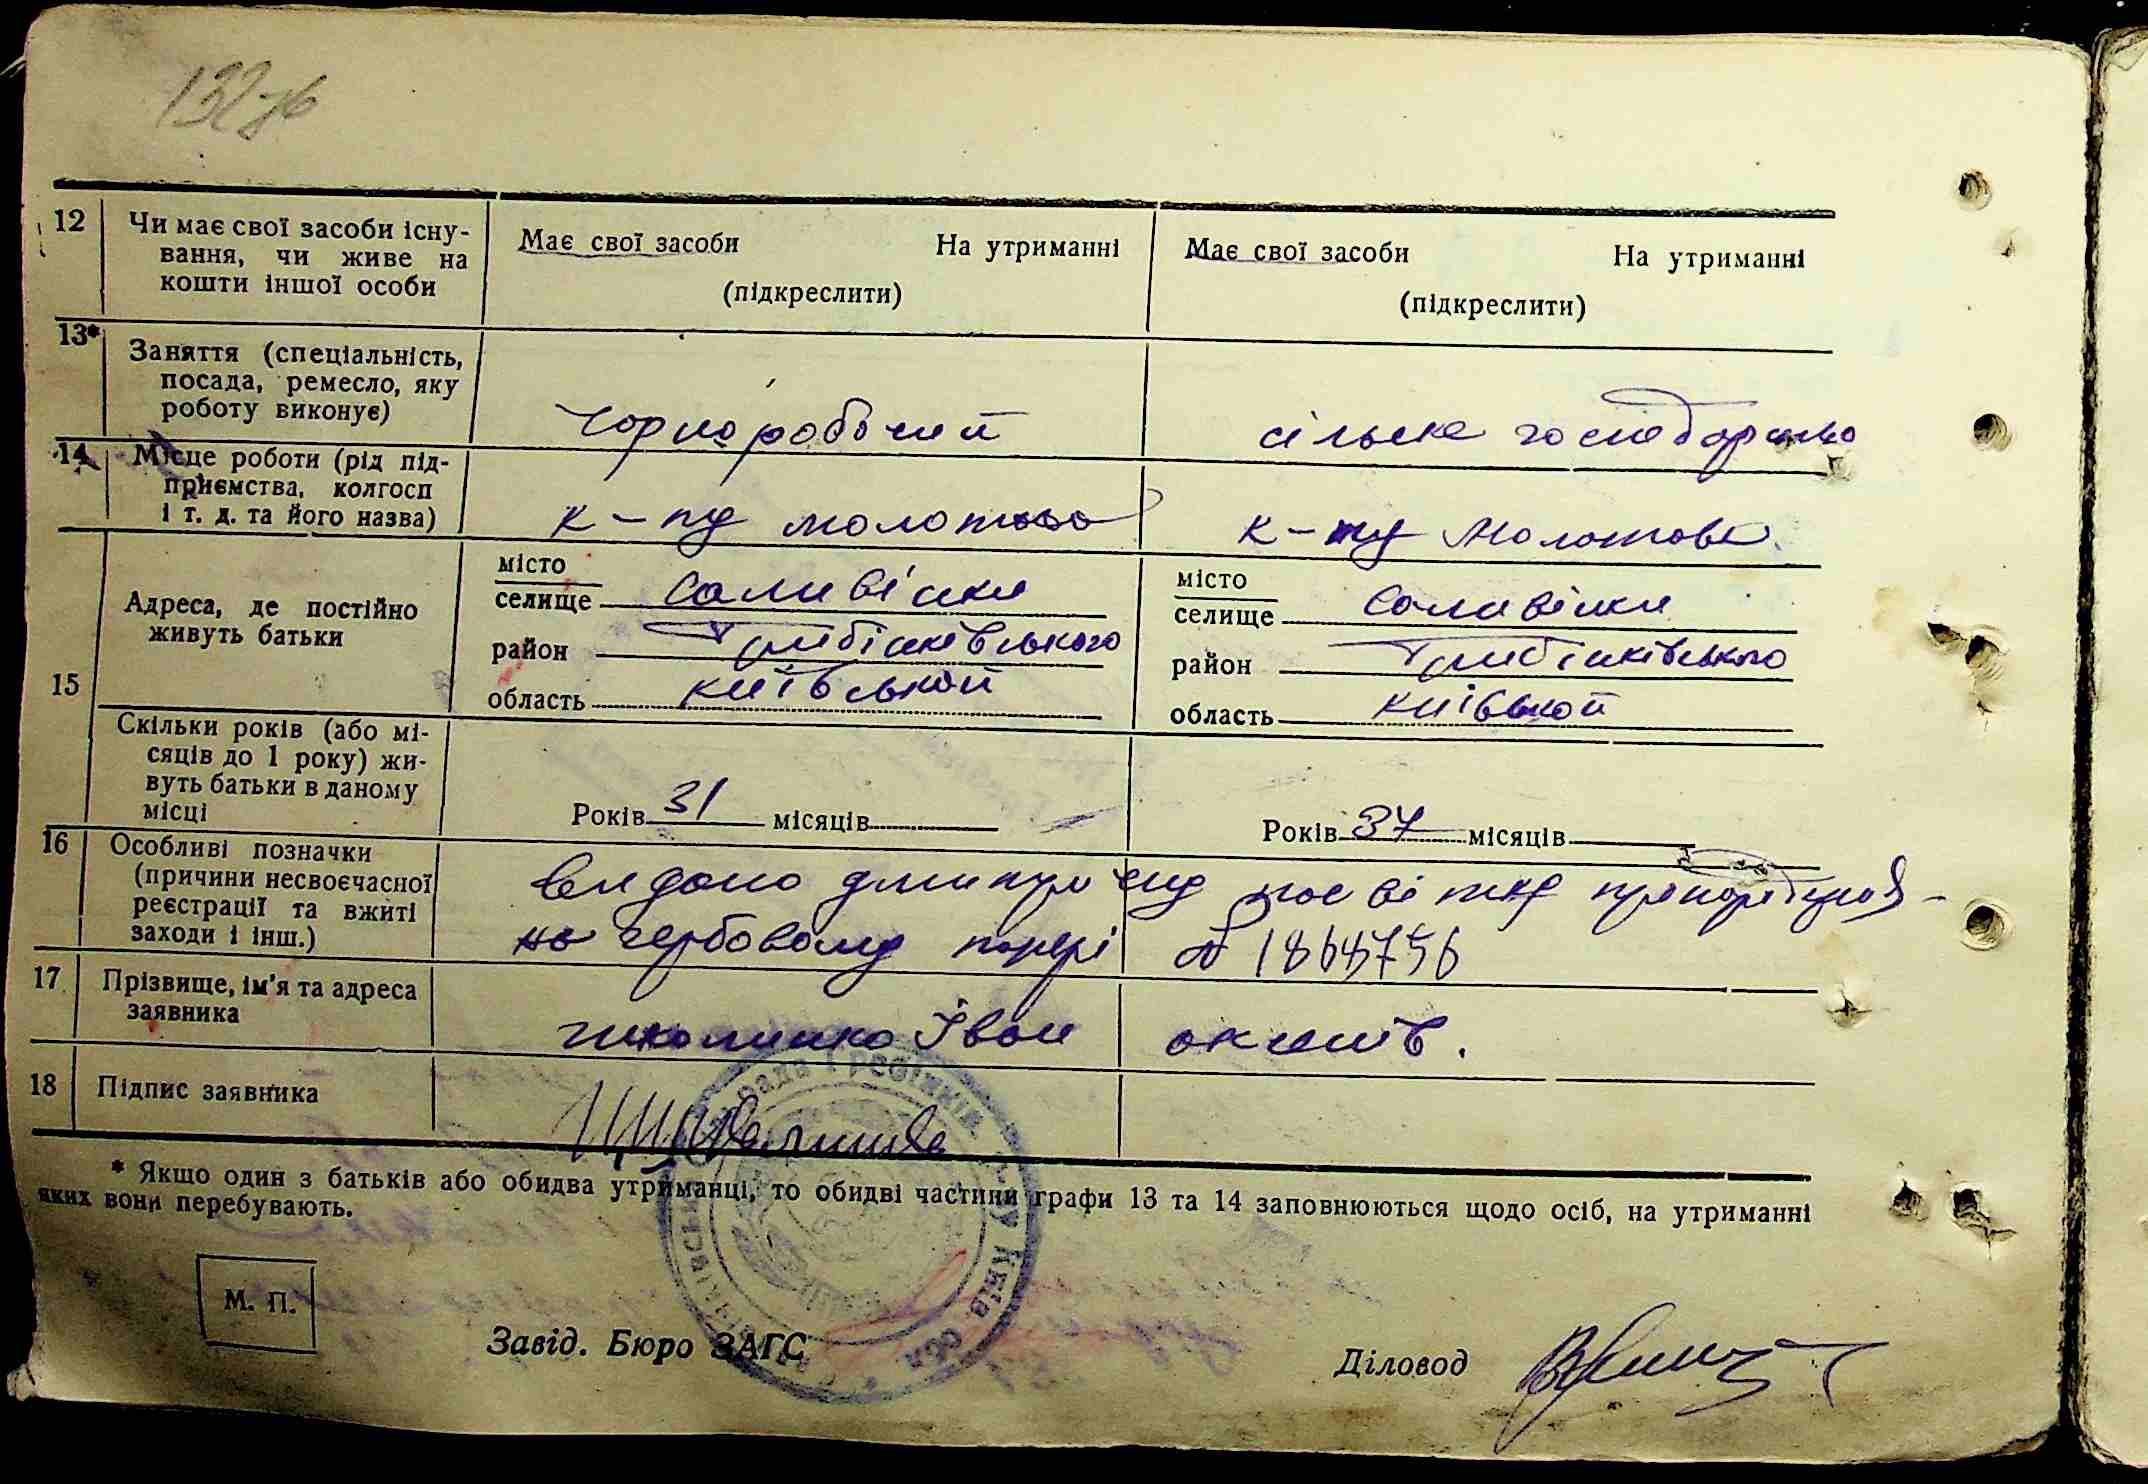 132зв
12 Чи має свої засоби існу-
вання, чи живе на
кошти іншої особи
Має свої засоби На утриманні
(підкреслити)
Має свої засоби На утриманні
(підкреслити)
13* Заняття (спеціальність,
посада, ремесло, яку
роботу виконує)
Чорноробочий
сільске господарство
14 Місце роботи (рід під-
приємства, колгосп
і т. д. та його назва)
к-пу молотова
к-пу Молотова
15 Адреса, де постійно
живуть батьки
місто
селище саливінки
район Гребінківського
область київській
місто
селище саливінки
район Гребінківського
область київській
Скільки років (або мі-
сяців до 1 року) жи-
вуть батьки в даному
місці
Років 31 місяців
Років 37 місяців
16 Особливі позначки
(причини несвоєчасної
реєстрації та вжиті
заходи і інш.)
видано
на гербовому папері
17 Прізвище, ім'я та адреса
заявника
Іван
18 Підпис заявника
* Якщо один з батьків або обидва утриманці, то обидві частини графи 13 та 14 заповнюються щодо осіб, на утриманні
яких вони перебувають.
М. П.
Завід. Бюро ЗАГС
Діловод